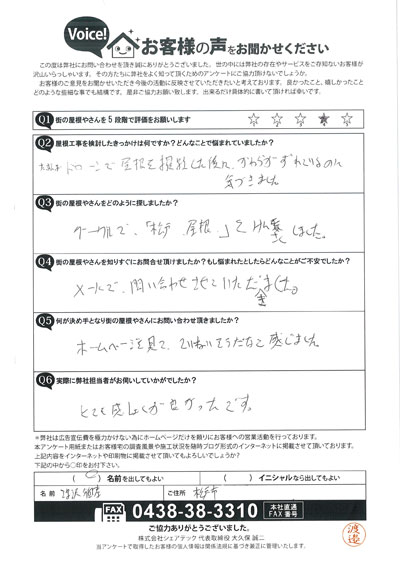 Voice!
お客様の声をお聞かせください
この度は弊社にお問い合わせを頂き誠にありがとうございました。世の中には弊社の存在やサービスをご存知ないお客様が
沢山いらっしゃいます。その方たちに弊社をよく知って頂くためのアンケートにご協力頂けないでしょうか。
お客様のご意見をお聞かせいただき今後の活動に反映させていただきたいと考えております。良かったこと、嬉しかったこと
どのような些細な事でも結構です。是非ご協力お願い致します。出来るだけ具体的に書いて頂ければ幸いです。
Q1 街の屋根やさんを5段階で評価をお願いします ☆ ☆ ☆ ★ ☆
Q2 屋根工事を検討したきっかけは何ですか?どんなことで悩まれていましたか?
ドローンで屋根を撮影した後に、かわらがずれているのに
気づきました
Q3 街の屋根やさんをどのように探しましたか?
グーグルで、「松戸、屋根、」とけん索しました。
Q4 街の屋根やさんを知りすぐにお問合せ頂けますか?もし悩まれたとしたらどんなことがご不安でしたか?
メールで、問い合わせさせていただきました。
Q5 何が決め手となり街の屋根やさんにお問い合わせ頂きましたか?
ホームページを見て、ていねいそうだなと感じました。
Q6 実際に弊社担当者がお伺いしていかがでしたか?
とても感じが良かったです。
※弊社は広告宣伝費を極力かけない為にホームページだけを頼りにお客様への営業活動を行っております。
本アンケート用紙またはお客様宅の調査風景や施工状況を随時ブログ形式のインターネットに掲載させて頂いております。
上記内容をインターネットや印刷物に掲載させて頂いてもよろしいでしょうか?
下記の中から○印をお付下さい。
( ○ ) 名前を出してもよい ( ) イニシャルなら出してもよい
名 前 ご住所 松戸市
FAX 0438-38-3310 本社直通 FAX番号
ご協力ありがとうございました。
株式会社シェアテック 代表取締役 大久保 誠二
当アンケートで取得したお客様の個人情報は関係法規に基づき厳正に管理いたします。
渡邉